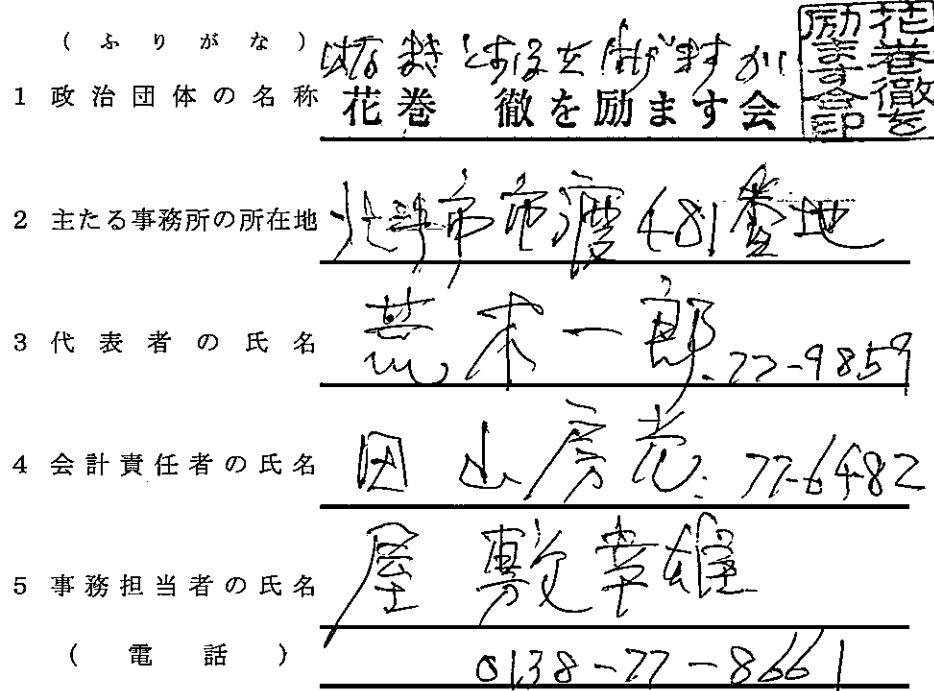 (ふりがな) はなまき とおるを はげますかい
1 政治団体の名称 花巻 徹を励ます会
花巻徹を励ます会印
2 主たる事務所の所在地 北斗市市渡481番地
3 代表者の氏名 荒木一郎 77-9859
4 会計責任者の氏名 田山房光 77-6482
5 事務担当者の氏名 屋敷幸雄
(電話) 0138-77-8661